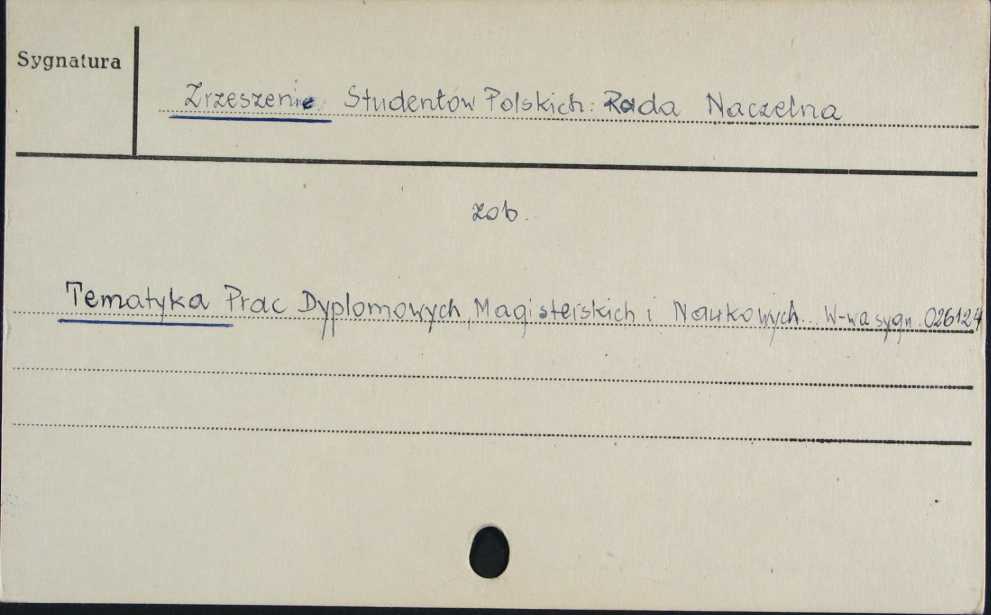 Sygnatura
Zrzeszenie Studentów Polskich. Rada Naczelna
zob.
Tematyka Prac Dyplomowych, Magisterskich i Naukowych. W-wa sygn. 026124